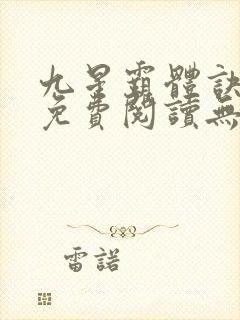 九星霸體訣
免費閱讀無
雷諾